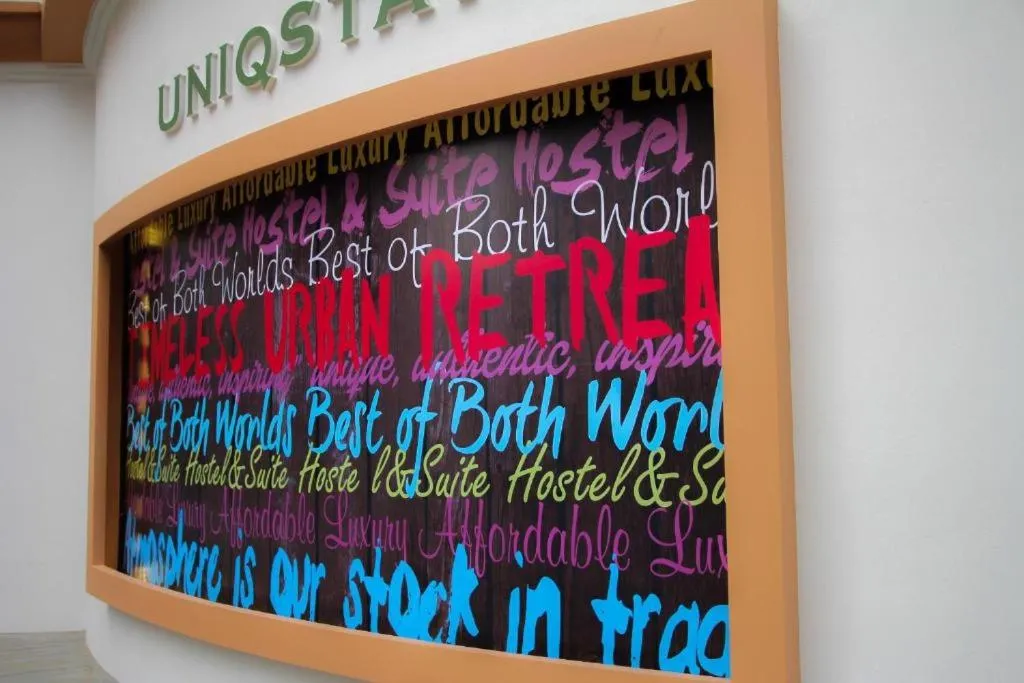 UNIQSTA
Affordable Luxury Affordable Luxury Affordable Lux
& Suite Hostel & Suite Hostel
Best of Both Worlds Best of Both Worl
TIMELESS URBAN RETREA
authentic, inspiring" unique, authentic, inspiri
Best of Both Worlds Best of Both Worl
Hostel&Suite Hostel&Suite Hoste l&Suite Hostel&Su
Luxury Affordable Luxury Affordable Lux
Atmosphere is our stock in trad